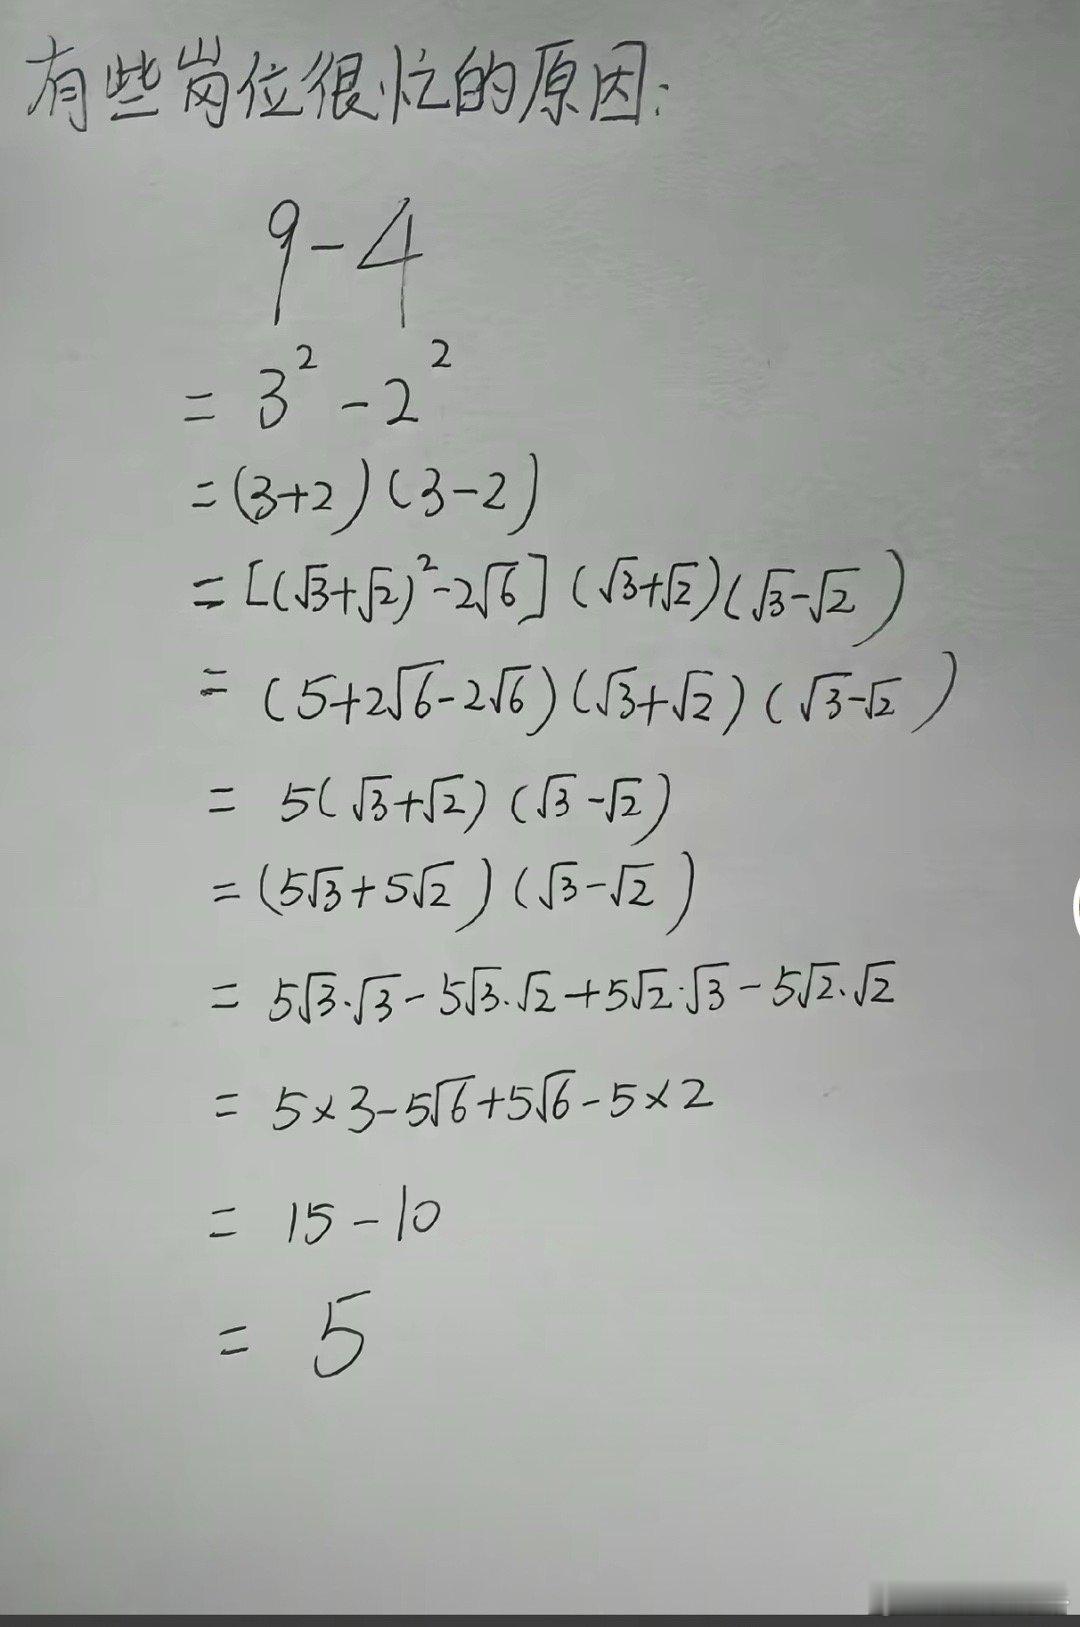 有些岗位很忙的原因:
9-4
= 3² - 2²
= (3+2)(3-2)
= [(√3+√2)²-2√6](√3+√2)(√3-√2)
= (5+2√6-2√6)(√3+√2)(√3-√2)
= 5(√3+√2)(√3-√2)
= (5√3+5√2)(√3-√2)
= 5√3·√3-5√3·√2+5√2·√3-5√2·√2
= 5×3-5√6+5√6-5×2
= 15-10
= 5